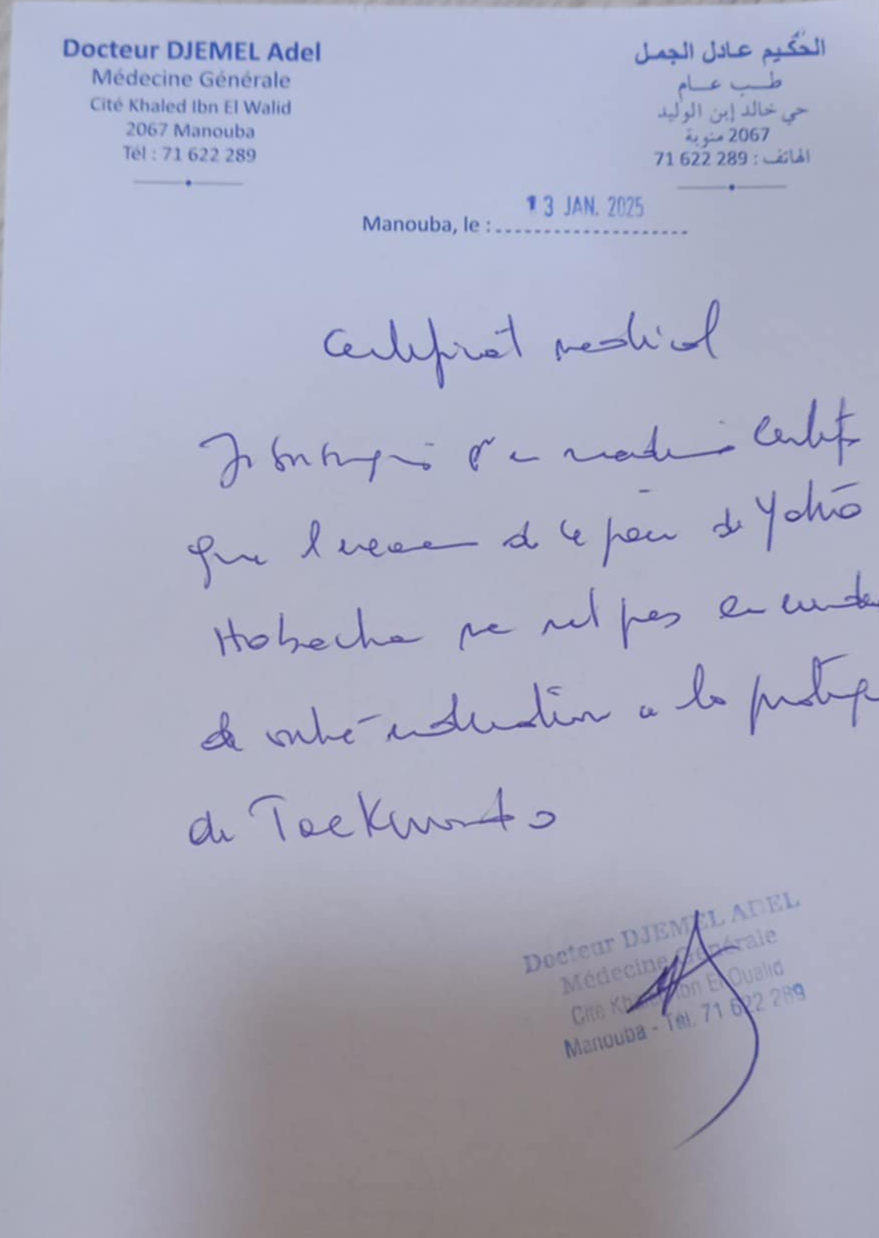 Docteur DJEMEL Adel
Médecine Générale
Cité Khaled Ibn El Walid
2067 Manouba
Tél : 71 622 289
الحكيم عادل الجمل
طب عام
حي خالد إبن الوليد
2067 منوبة
الهاتف : 289 622 71
Manouba, le : 13 JAN. 2025
Certificat medical
Je soussigné Dr en medecine Certif
que l'examen de ce jour de
Habacha ne met pas en
de contre-indication a la pratiq
de Taekwondo
Docteur DJEMEL ADEL
Médecine Générale
Cité Khaled Ibn El Oualid
Manouba - Tél. 71 622 289